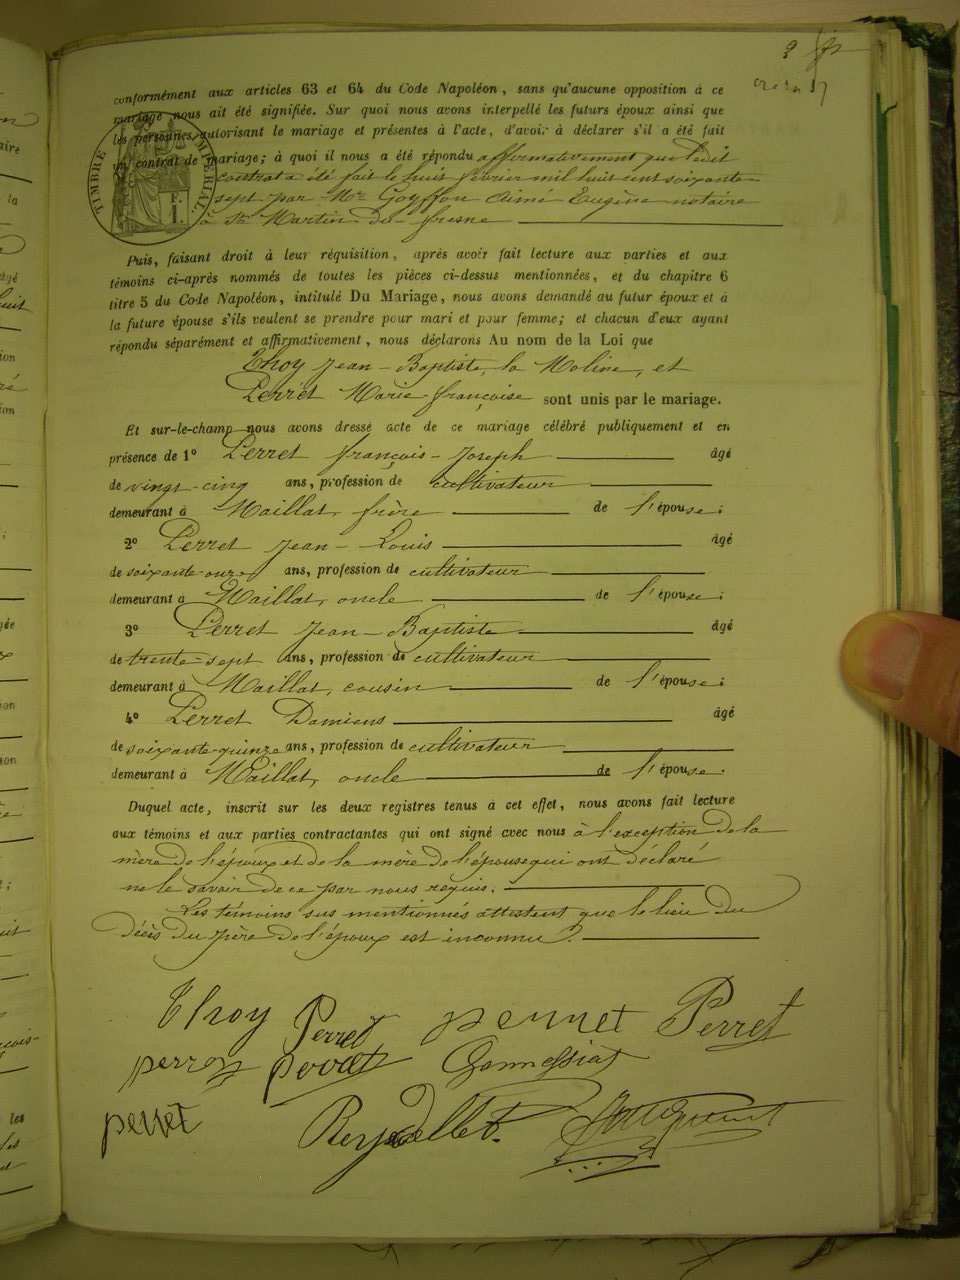 conformément aux articles 63 et 64 du Code Napoléon, sans qu'aucune opposition à ce
mariage nous ait été signifiée. Sur quoi nous avons interpellé les futurs époux ainsi que
les personnes autorisant le mariage et présentes à l'acte, d'avoir à déclarer s'il a été fait
un contrat de mariage; à quoi il nous a été répondu affirmativement que ledit
contrat a été fait le huit février mil huit cent soixante
sept par Me Goyffon Aimé Eugène notaire
à St Martin du fresne
TIMBRE IMPÉRIAL
F.
1.
Puis, faisant droit à leur réquisition, après avoir fait lecture aux parties et aux
témoins ci-après nommés de toutes les pièces ci-dessus mentionnées, et du chapitre 6
titre 5 du Code Napoléon, intitulé Du Mariage, nous avons demandé au futur époux et à
la future épouse s'ils veulent se prendre pour mari et pour femme; et chacun d'eux ayant
répondu séparément et affirmativement, nous déclarons Au nom de la Loi que
Thoy Jean-Baptiste, la Moline, et
Perret Marie françoise sont unis par le mariage.
Et sur-le-champ nous avons dressé acte de ce mariage célébré publiquement et en
présence de 1° Perret françois-Joseph âgé
de vingt-cinq ans, profession de cultivateur
demeurant à Maillat, frère de l'épouse;
2° Perret Jean-Louis âgé
de soixante-onze ans, profession de cultivateur
demeurant à Maillat, oncle de l'épouse;
3° Perret Jean-Baptiste âgé
de trente-sept ans, profession de cultivateur
demeurant à Maillat, cousin de l'épouse;
4° Perret Damiens âgé
de soixante-quinze ans, profession de cultivateur
demeurant à Maillat, oncle de l'épouse.
Duquel acte, inscrit sur les deux registres tenus à cet effet, nous avons fait lecture
aux témoins et aux parties contractantes qui ont signé avec nous à l'exception de la
mère de l'époux et de la mère de l'épouse qui ont déclaré
ne le savoir de ce par nous requis.
Les témoins sus mentionnés attestent que le lieu du
décès du père de l'époux est inconnu.
Thoy Perret pernet Perret
perron perret Gonnessiat
perret Reydellet